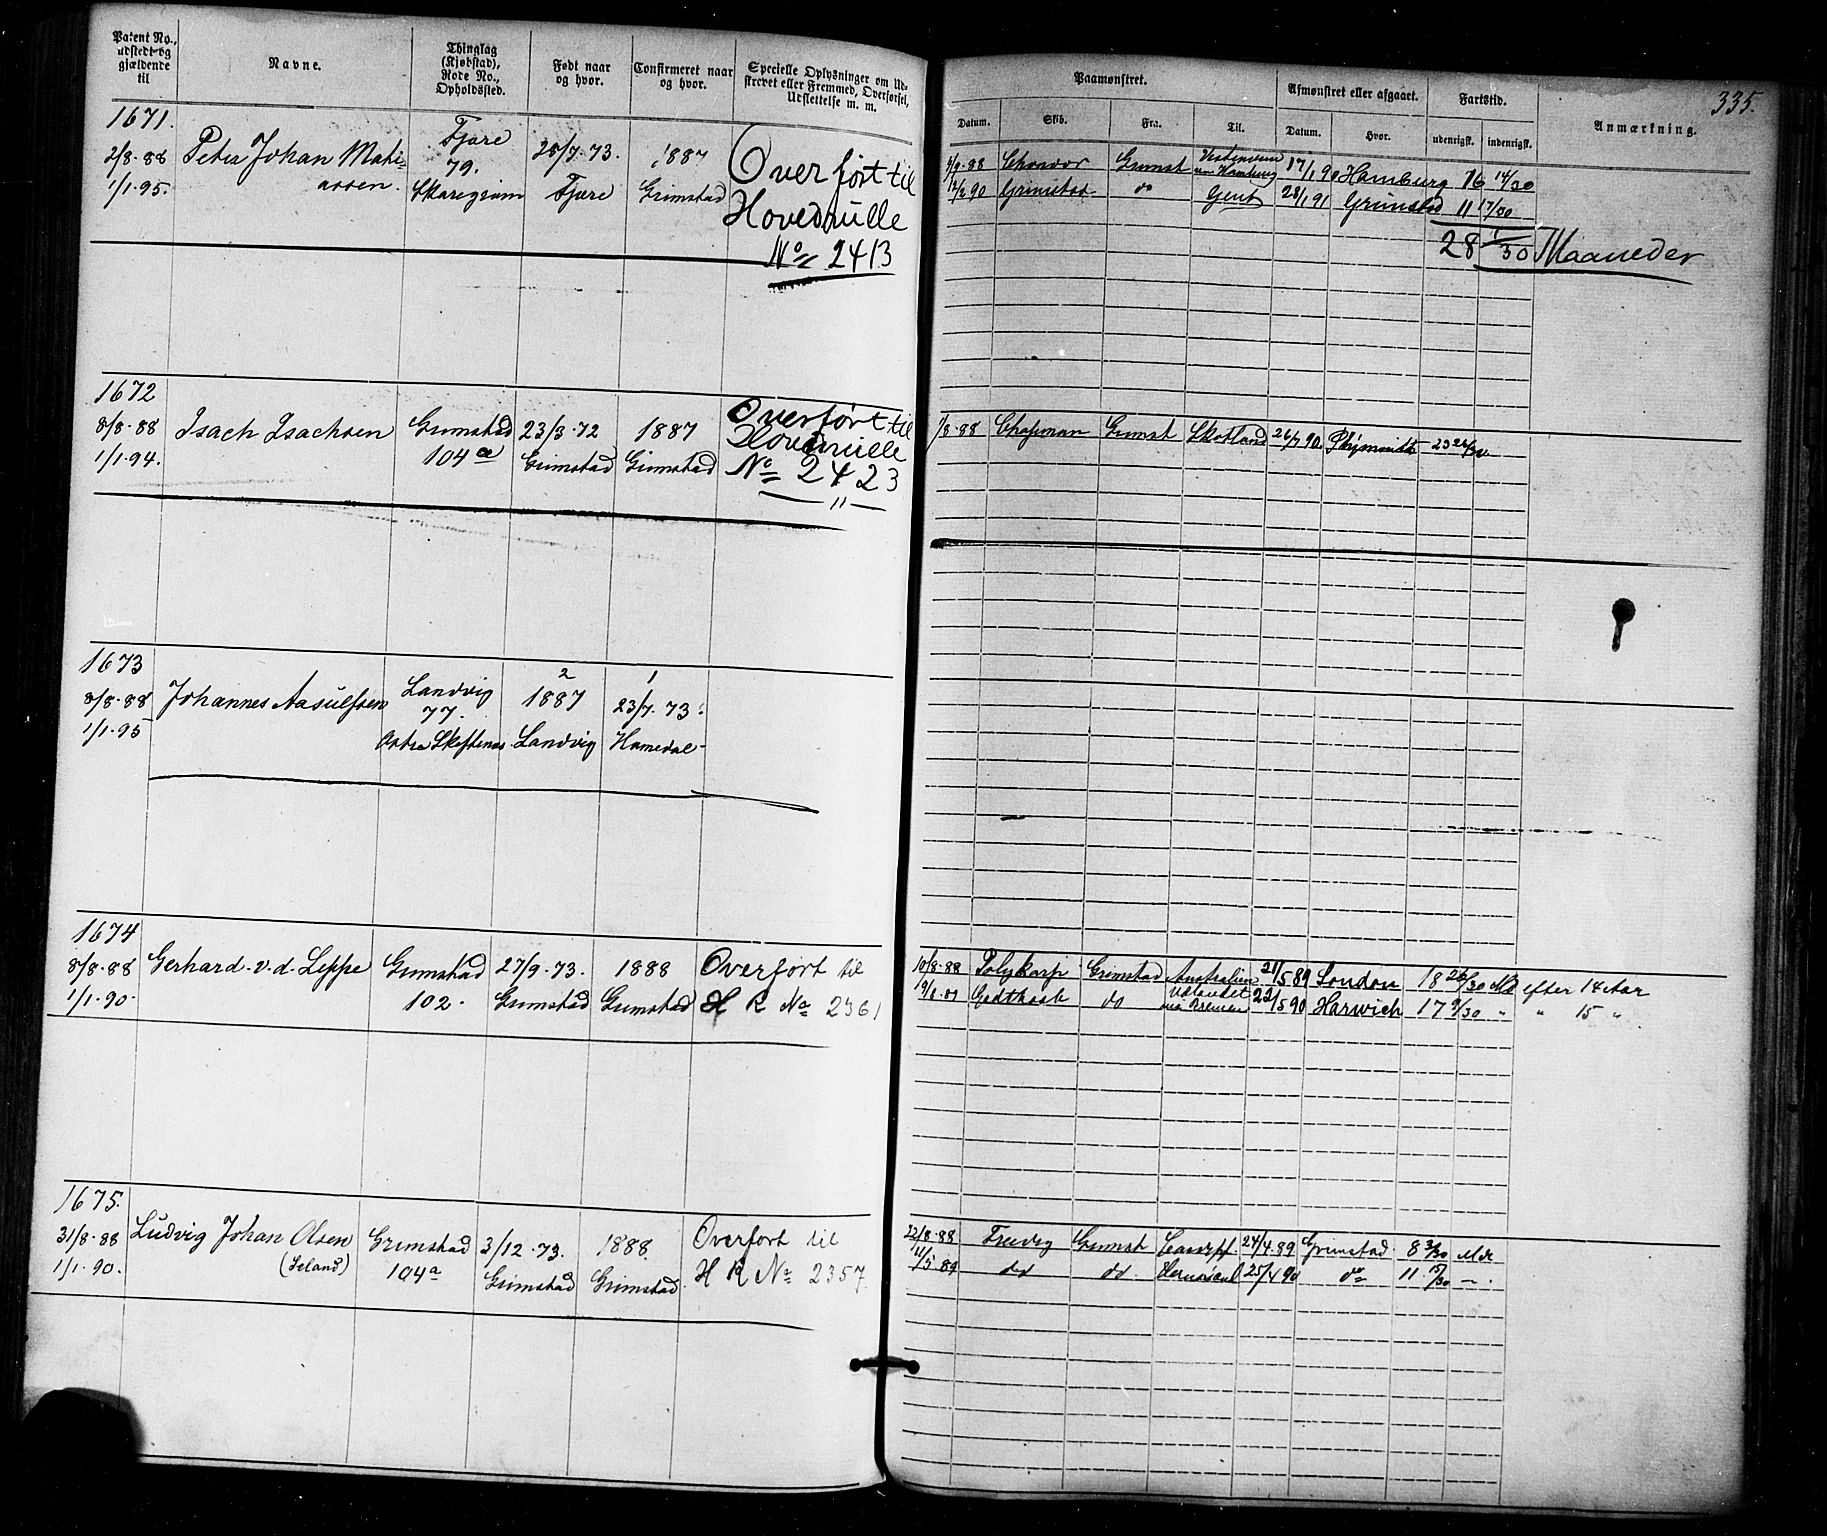 335.
Patent No., udstedt og gjældende til
Navne.
Thinglag (Kjøbstad), Rode No., Opholdssted.
Født naar og hvor.
Confirmeret naar og hvor.
Specielle Oplysninger om Udskrevet eller Fremmed, Overførsel, Udslettelse m. m.
Paamønstret.
Afmønstret eller afgaaet.
Fartstid.
Anmærkning.
Datum. Skib. Fra. Til. Datum. Hvor. udenrigsk. indenrigsk.
1671.
2/8-88 Peter Johan Mathi=
1/1.95. assen.
Fjære
79.
Skaregrøm
25/7.73.
Fjære
1887
Grimstad
Overført til
Hovedrulle
No 2413
Grimst 17/1 90 Hamburg 16 14/30
12/2 90 Grimstad do Gent 28/1 91 Grimstad 11 17/30
28 1/30 Maaneder
1672
8/8-88 Isach Isachsen
1/1.94.
Grimstad
104a
23/3.72
Grimstad
1887
Grimstad
Overført til
Hovedrulle
No 2423
1/8-88 Chapman Grimst Skotland 26/7 90
1673
8/8-88 Johannes Aasulfsen
1/1.95
Landvig
77.
2
1887
Landvig
1
23/7.73.
Homedal
1674
8/8-88 Gerhard v. d. Leppe
1/1.90.
Grimstad
102.
27/9.73.
Grimstad
1888
Grimstad
Overført til
H R No 2361
10/8-88 Polykarp Grimstad Australien 21/5 89 London 18 26/30 Md efter 14 Aar
Godthaab do Udlandet 22/5 90 Harwich 17 9/30 " " 15 "
1675.
31/8-88 Ludvig Johan Olsen
1/1.90. (Leland)
Grimstad
104a
3/12.73.
Grimstad
1888
Grimstad.
Overført til
H R No 2357.
22/8-88 Fredig Grimst 24/4.89 Grimstad. 8 3/30 Mdr
11/5 89 do do. Hernøsand 25/4 90 do 11. 15/30 — .